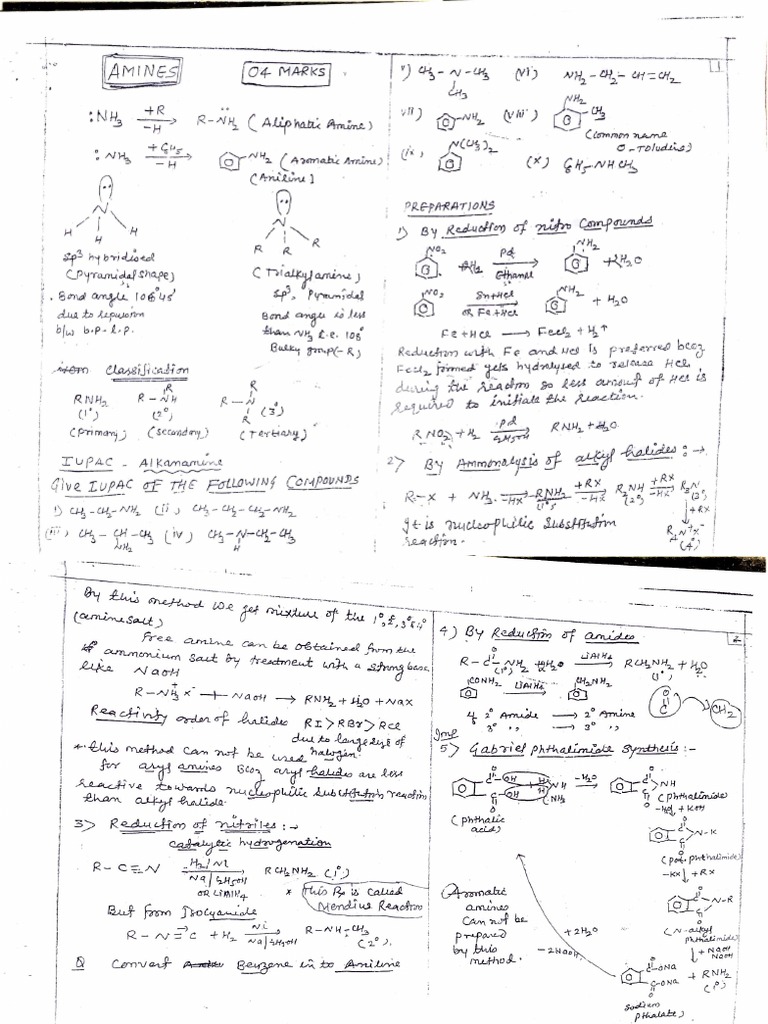 AMINES
04 MARKS
:NH3 +R -H → R-N̈H2 (Aliphatic Amine)
:NH3 +C6H5 -H → NH2 (Aromatic Amine)
(Aniline)
N
H H H
N
R R R
Sp3 hybridised
(Pyramidal shape)
Bond angle
due to repulsion
b/w b.p-l.p.
(Trialkylamine)
Sp3, Pyramidal
Bond angle is less
than NH3 i.e. 108°
Bulky group(-R)
Classification
RNH2 (1°) (Primary)
R-NH R (2°) (Secondary)
R-N R R (3°) (Tertiary)
IUPAC - Alkanamine
Give IUPAC OF THE FOLLOWING COMPOUNDS
i) CH3-CH2-NH2 (ii) CH3-CH2-CH2-NH2
(iii) CH3-CH-CH3 NH2 (iv) CH3-N-CH2-CH3 H
v) CH3-N-CH3 CH3 (vi) NH2-CH2-CH=CH2
vii) NH2 (viii) NH2 CH3
(Common name
O-Toludine)
(ix) N(CH3)2 (x) C6H5-NHCH3
1
PREPARATIONS
1) By Reduction of nitro Compounds
NO2 +H2 Pd Ethanol → NH2 +H2O
NO2 Sn+HCl or Fe+HCl → NH2 + H2O
Fe+HCl → FeCl2 + H2↑
Reduction with Fe and HCl is preferred bcoz
FeCl2 formed gets hydrolysed to release HCl
during the reaction so less amount of HCl is
required to initiate the reaction.
RNO2+H2 Pd C2H5OH → RNH2+H2O
2) By Ammonalysis of alkyl halides :→
R-X + NH3 -HX → RNH2 (1°) +RX -HX → R2NH (2°) +RX -HX → R3N
↓ +RX
R4N+X- (4°)
It is nucleophilic Substitution
reaction.
By this method we get mixture of the 1°, 2°, 3° & 4°
(amine salt)
Free amine can be obtained from the
ammonium salt by treatment with a strong base
like NaOH
R-NH3+X- + NaOH → RNH2 + H2O + NaX
Reactivity order of halides RI > RBr > RCl
due to large size of
halogen
* this method can not be used
for aryl amines Bcoz aryl halides are less
reactive towards nucleophilic substitution reaction
than alkyl halide.
3) Reduction of nitriles :→
Catalytic hydrogenation
R-C≡N H2/Ni Na/C2H5OH OR LiAlH4 → RCH2NH2 (1°)
* This Rx is called
Mendius Reaction
But from Isocyanide
R-N≡C + H2 Ni Na/C2H5OH → R-NH-CH3 (2°)
Q Convert Benzene in to Aniline
2
4) By Reduction of amides
R-C-NH2 O (1°) LiAlH4 → RCH2NH2 + H2O (1°)
CONH2 LiAlH4 → CH2NH2
O C → CH2
if 2° Amide → 2° Amine
3° ,, → 3° ,,
Imp
5) Gabriel phthalimide Synthesis :-
C-OH C-OH O O + H H NH (NH3 -H2O → C C O O NH
(phthalic
acid)
(phthalimide)
-H2O ↓ +KOH
C C O O N-K
(pot phthalimide)
-KX ↓ +RX
C C O O N-R
(N-alkyl
phthalimide)
↓ +NaOH
NaOH
+2H2O
-2NaOH
C-ONa C-ONa O O + RNH2 (1°)
Sodium
phthalate)
(Aromatic
amines
can not be
prepared
by this
method.